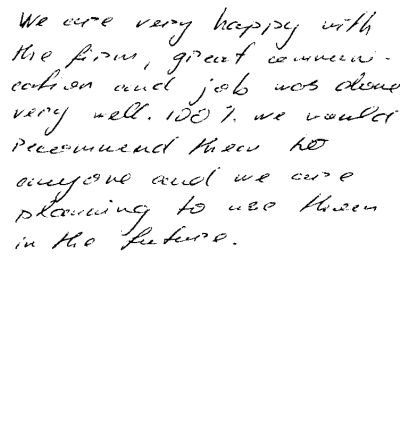 We are very happy with
the firm, great communi-
cation and job was done
very well. 100% we would
recommend them to
anyone and we are
planning to use them
in the future.